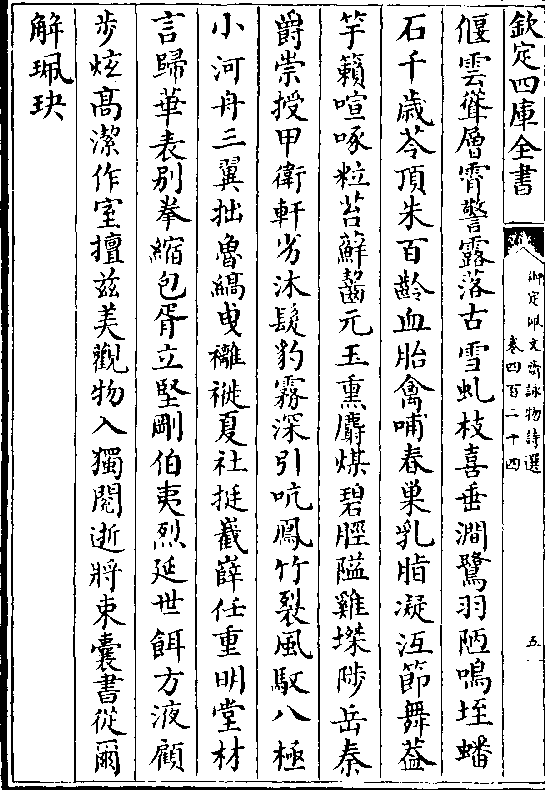 欽定四庫全書
御定佩文齋詠物詩選
卷四百二十四
五
偃雲聳層霄警露落古雪虬枝喜垂澗鷺羽陋鳴垤蟠
石千歳苓頂朱百齡血胎禽哺春巢乳脂凝沍節舞葢
竽籟喧啄粒苔蘚齧元玉熏麝煤碧脛隘雞塒陟岳秦
爵崇授甲衛軒劣沐髮豹霧深引吭鳳竹裂風馭八極
小河舟三翼拙魯縞曳襳褷夏社挺嶻嶭任重明堂材
言歸華表别拳縮包胥立堅剛伯夷烈延世餌方液顧
歩炫髙潔作室擅兹美觀物入獨閲逝將束囊書從爾
解珮玦